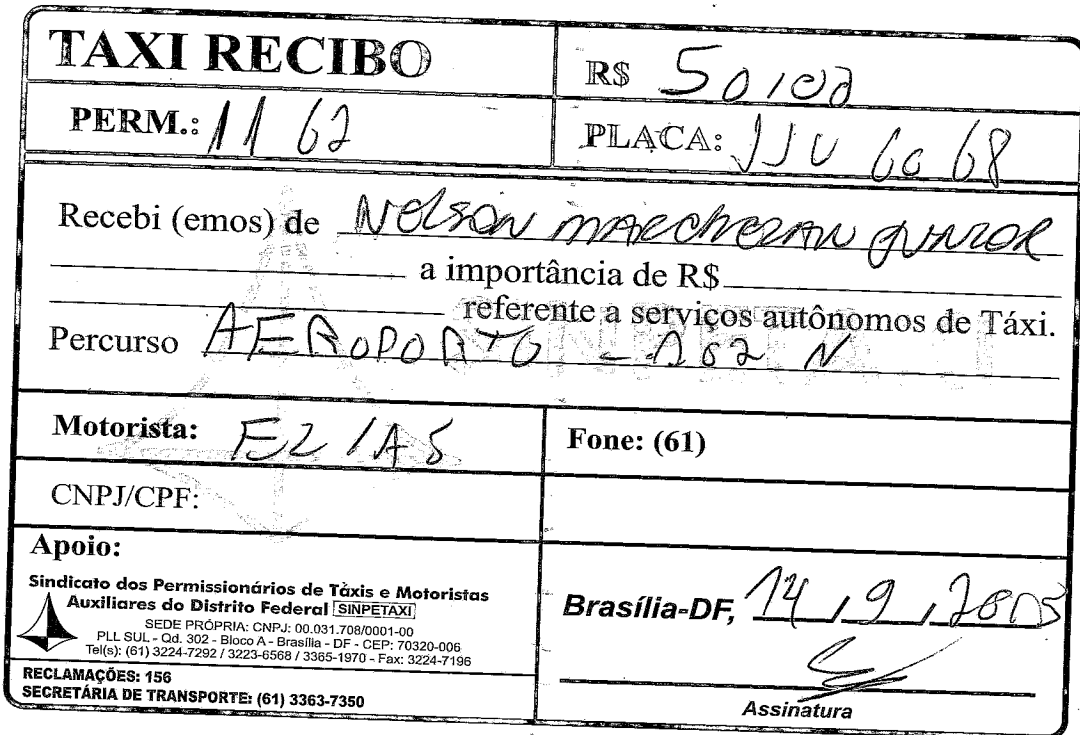 TAXI RECIBO
R$ 50,00
PERM.: 1162
PLACA: JJU 6068
Recebi (emos) de NELSON MARCHEZAN JUNIOR
a importância de R$
referente a serviços autônomos de Táxi.
Percurso AEROPORTO - 202 N
Motorista: ELIAS
Fone: (61)
CNPJ/CPF:
Apoio:
Sindicato dos Permissionários de Táxis e Motoristas
Auxiliares do Distrito Federal SINPETAXI
SEDE PRÓPRIA: CNPJ: 00.031.708/0001-00
PLL SUL - Qd. 302 - Bloco A - Brasília - DF - CEP: 70320-006
Tel(s): (61) 3224-7292 / 3223-6568 / 3365-1970 - Fax: 3224-7196
RECLAMAÇÕES: 156
SECRETÁRIA DE TRANSPORTE: (61) 3363-7350
Brasília-DF, 14 / 9 /
Assinatura